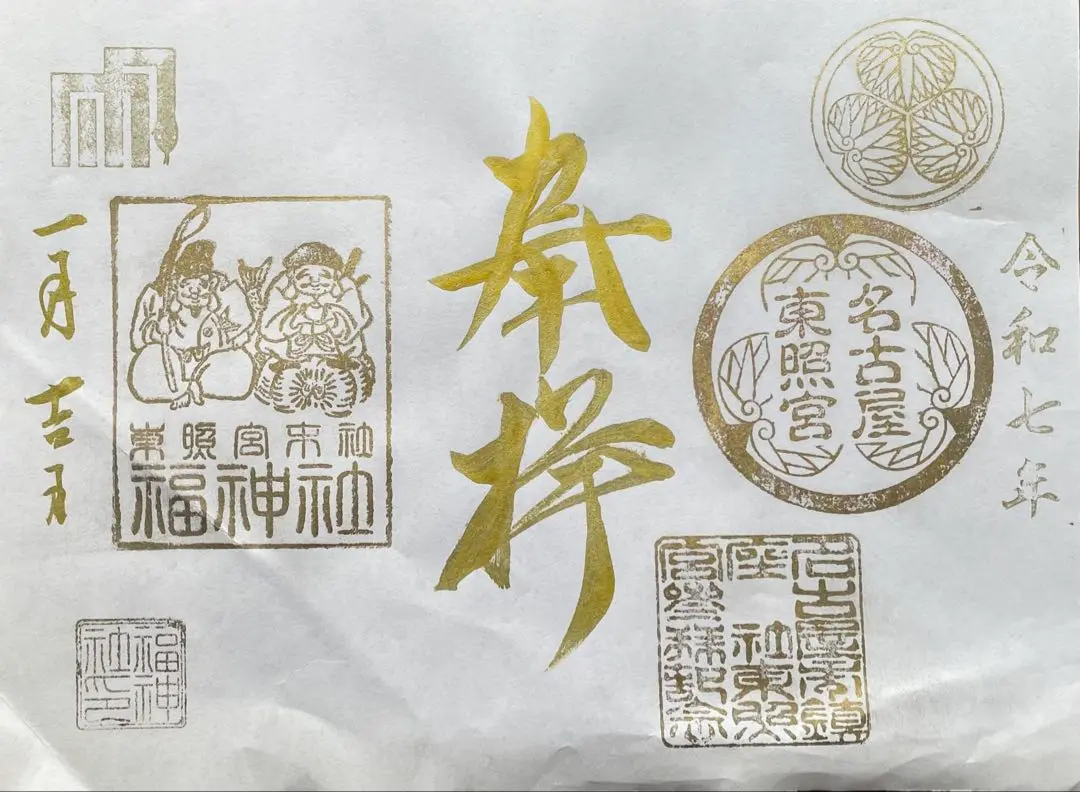 令和七年
名古屋
東照宮
名古屋市鎮
座 社東照
宮参拝記念
奉拝
東照宮末社
福神社
一月吉日
福神
社印